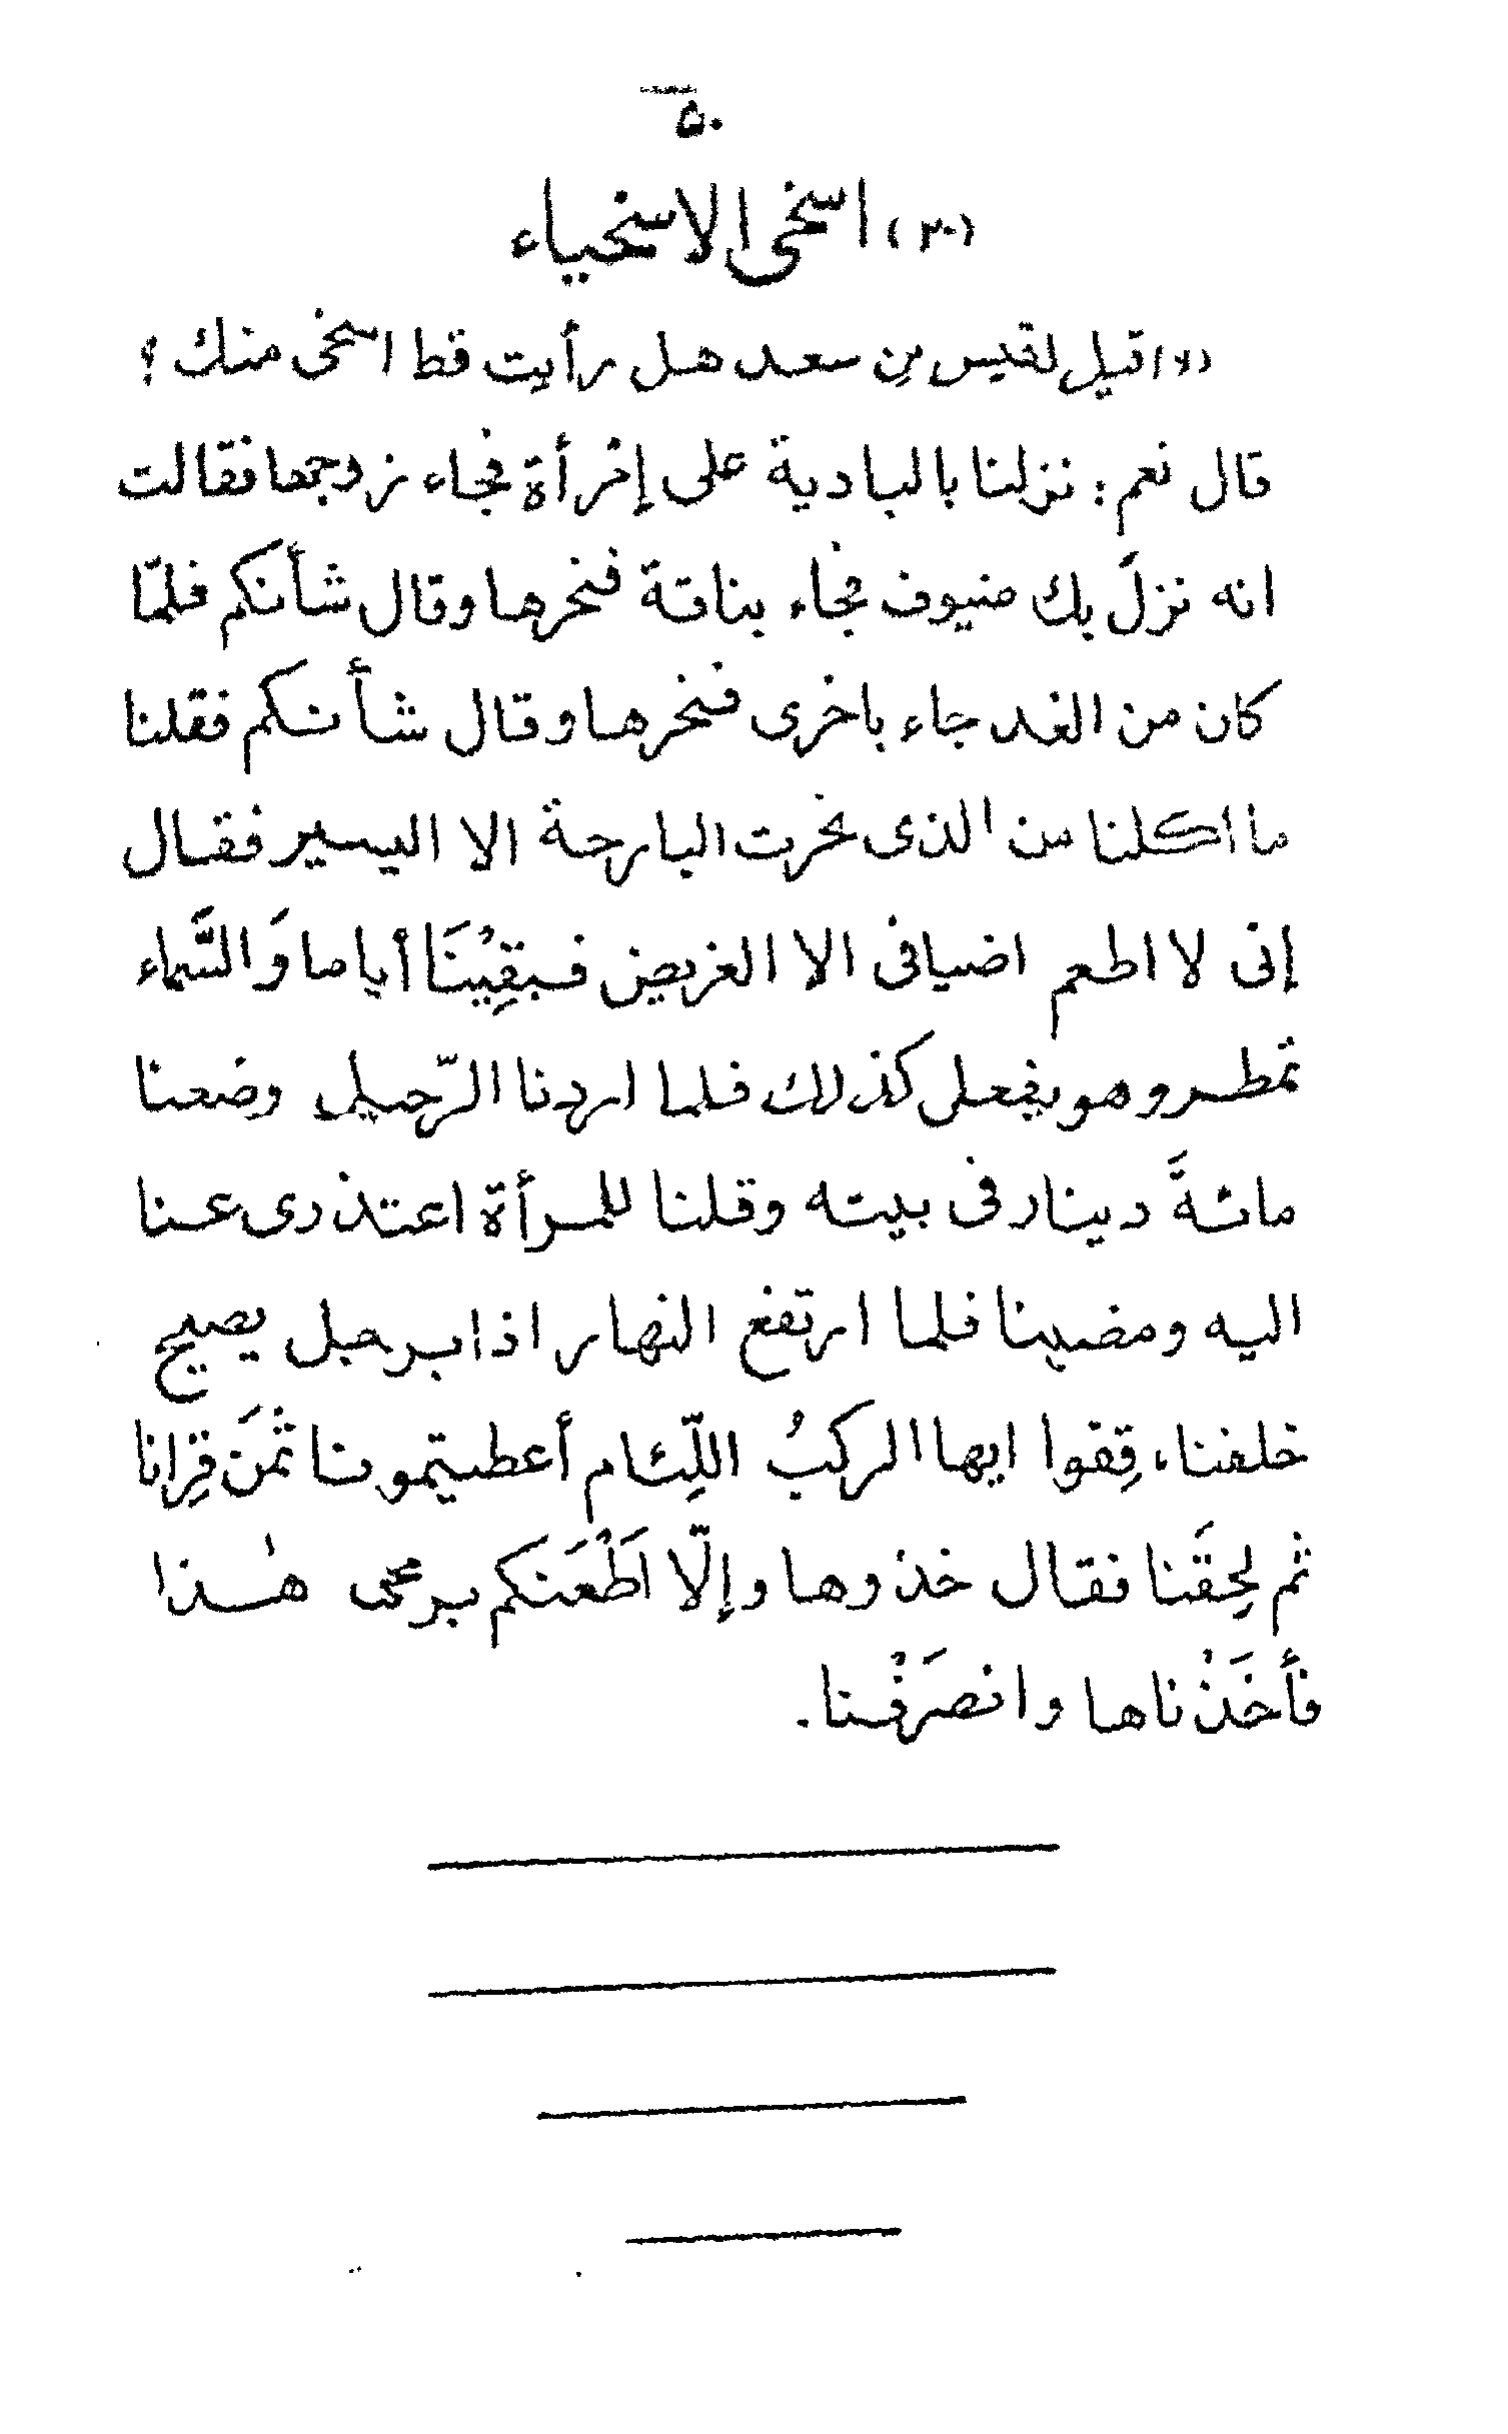 ۵۰
(۳۰) اسخی الاسخیاء
(۱) قیل لقیس بن سعد هل رأیت قط اسخی منك ؟
قال نعم : نزلنا بالبادیة علی إمْرأة فجاء زوجها فقالت
انه نزلَ بك ضیوف فجاء بناقة فنحرها وقال شأنكم فلمّا
كان من الغد جاء باخری فنحرها وقال شأنكم فقلنا
ما اكلنا من الذی نحرت البارحة الا الیسیر فقال
إنی لا اطعم اضیافی الا الغریض فبقِیْنَا أیاما وَالسَّماء
تمطر وهو یفعل كذلك فلما اردنا الرّحیل وضعنا
مائةَ دینار فی بیته وقلنا للمرأة اعتذری عنا
الیه ومضینا فلما ارتفع النهار اذا برجل یصیح
خلفنا، قِفوا ایها الركبُ اللِّئام أعطیتمونا ثمَنَ قِرانا
ثم لحِقَنا فقال خذوها وإلّا اَطْعَنَكم برمحی هٰذا
فأخَذْناها وانصَرَفْنا.